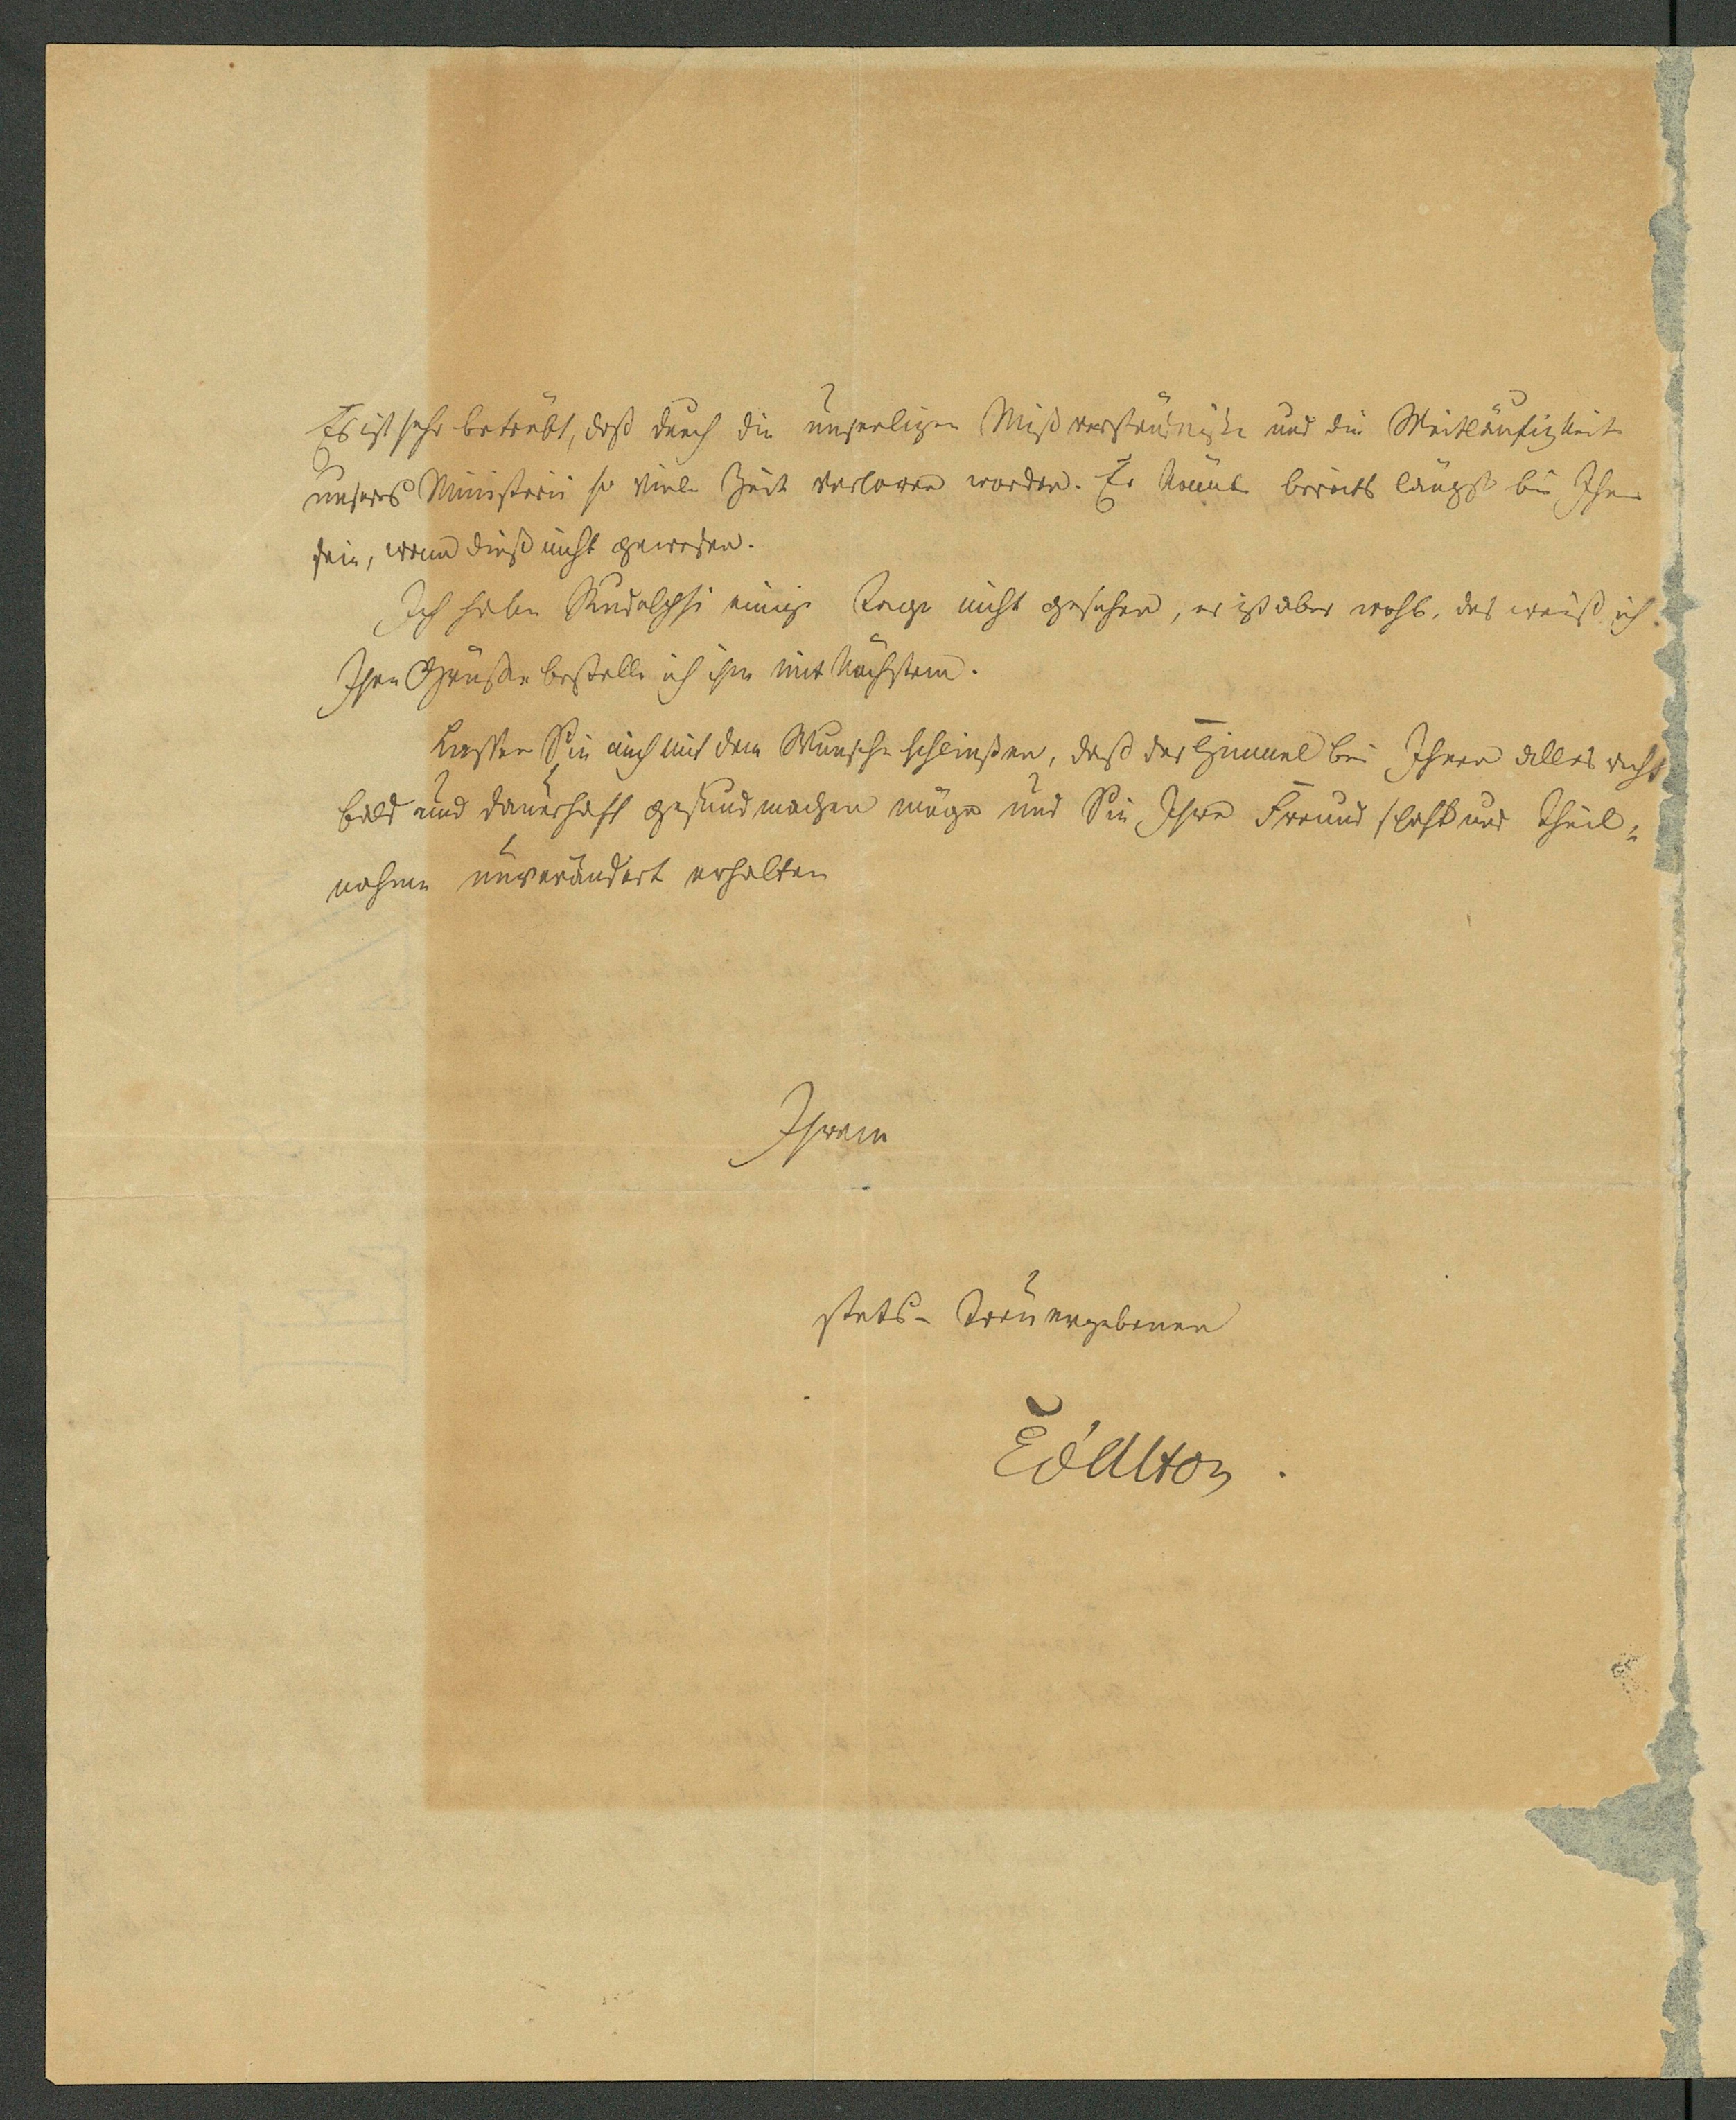 Es ist sehr betrübt, daß durch die unseeligen Mißverständniße und die Weitläufigkeit
unseres Ministerii so viele Zeit verloren worden. Er könnte bereits längst bei Ihnen
sein, wenn dieß nicht gewesen.
Ich habe Rudolphi einige Tage nicht gesehen, er ist aber wohl, das weiß ich.
Ihre Grüße bestelle ich ihm mit Nächstem.
Lassen Sie mich mit dem Wunsche schließen, daß der Himmel bei Ihnen alles recht
bald und dauerhaft gesund machen möge und Sie Ihre Freundschaft und Theil-
nahme unverändert erhalten
Ihrem
stets treuergebenen
EdAlton.